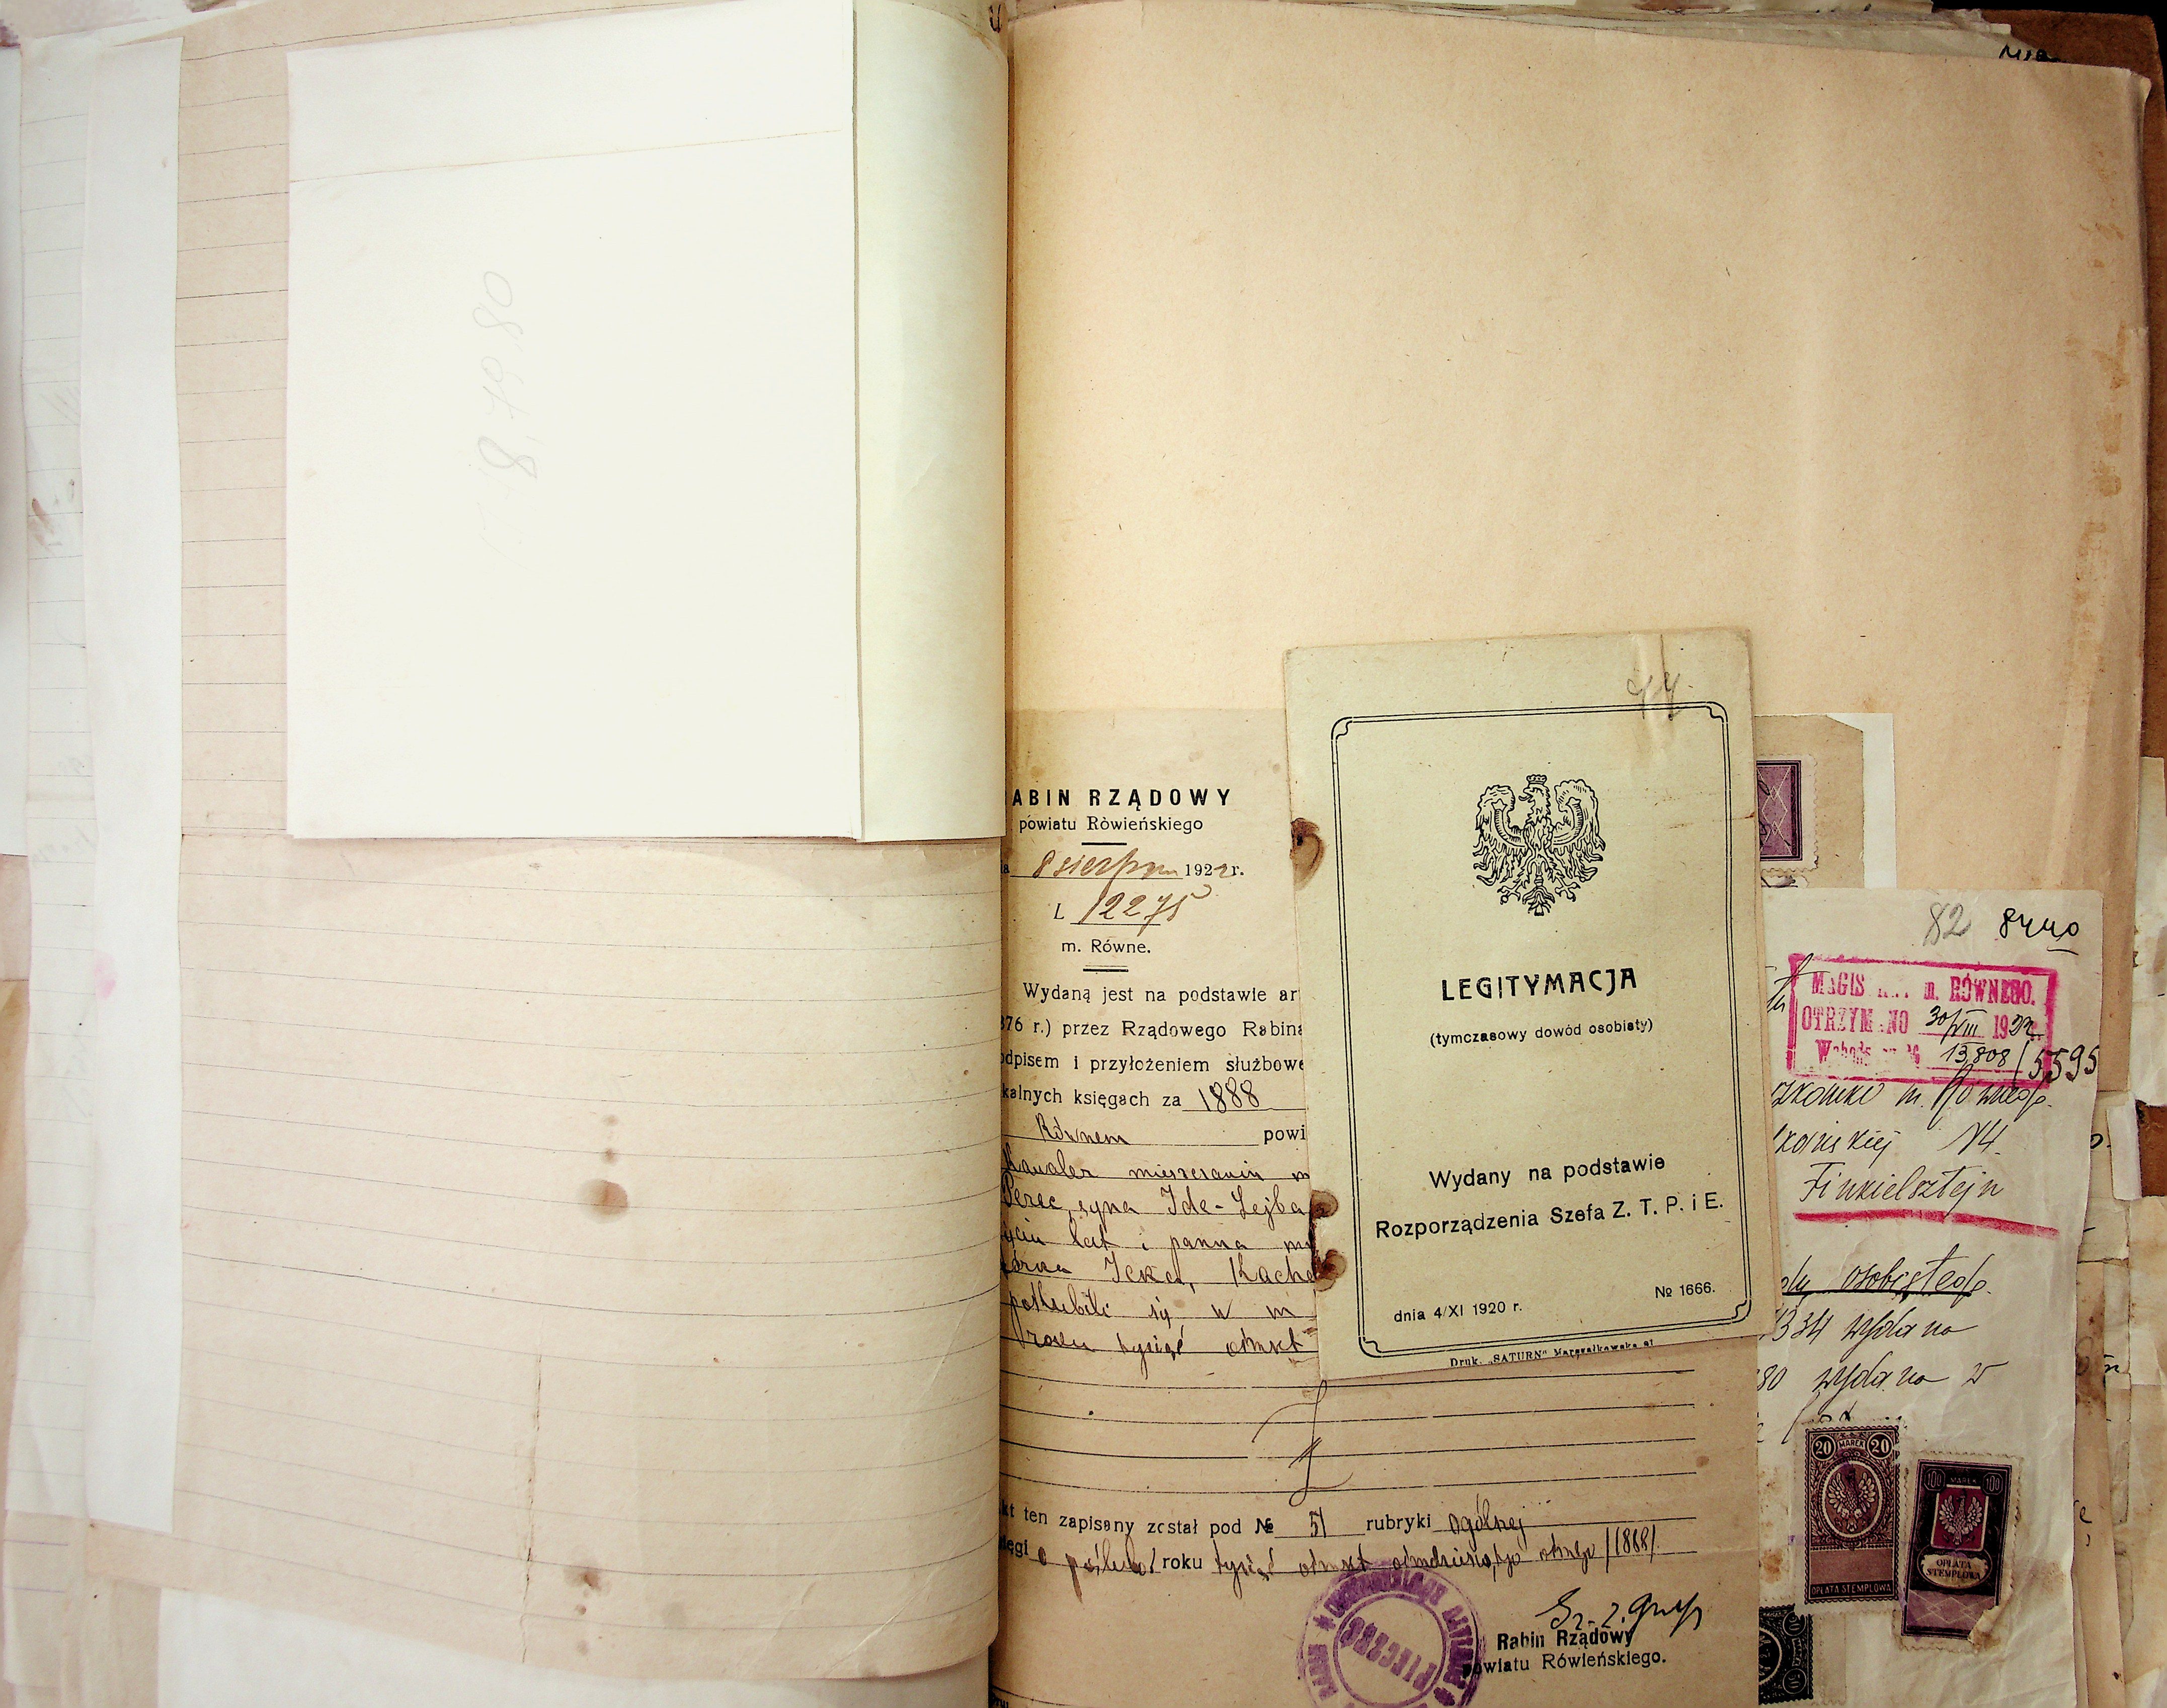 8,79,80
ABIN RZĄDOWY
powiatu Ròwieńskiego
a 8 sierpnia 1922 r.
L 12275
m. Równe.
Wydaną jest na podstawie ar
876 r.) przez Rządowego Rabina
odpisem i przyłożeniem służbowe
kalnych księgach za 1888
Równem powi
Kawaler mieszczanin m
Perec, syna Ide-Lejba
lat i panna
Icka, Rache
poślubili się w m
roku tysiąc ośmset
kt ten zapisany został pod № 51 rubryki ogólnej
ięgi o poślub. roku tysiąc ośmset ośmdziesiątego ósmego /1888/
Rabin Rządowy
powiatu Rówieńskiego.
LEGITYMACJA
(tymczasowy dowód osobisty)
Wydany na podstawie
Rozporządzenia Szefa Z. T. P. i E.
dnia 4/XI 1920 r. № 1666.
Druk. „SATURN" Marszałkowska 91
82 8440
MAGIS m. RÓWNEGO.
OTRZYMANO 30/VIII 1922
13,808/5595
m. Równego.
14.
Finkielsztejn
osobistego.
334 wydano
80 wydano w
20 MAREK 20
OPŁATA STEMPLOWA
100 MAREK 100
OPŁATA
STEMPLOWA